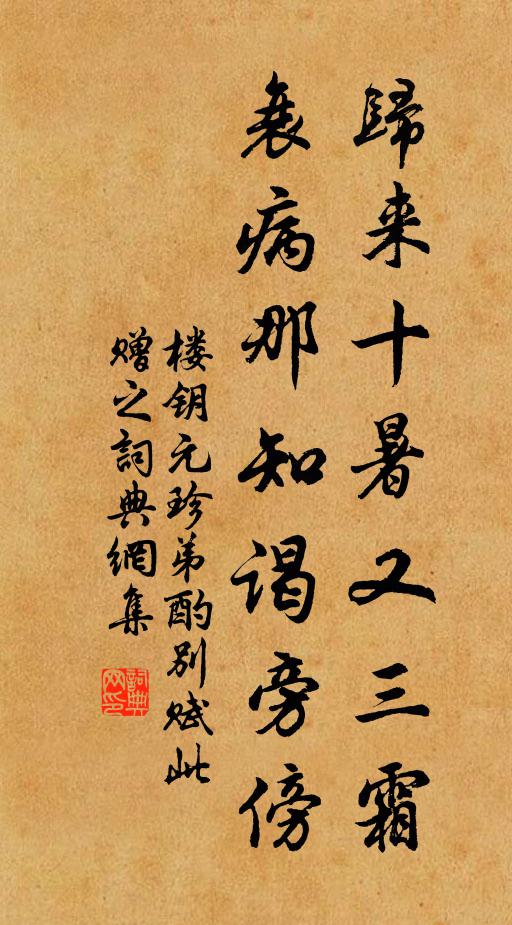 歸来十暑又三霜
衰病那知谒旁傍
楼钥元珍弟酌别赋此
赠之詞典網集
詞典网印